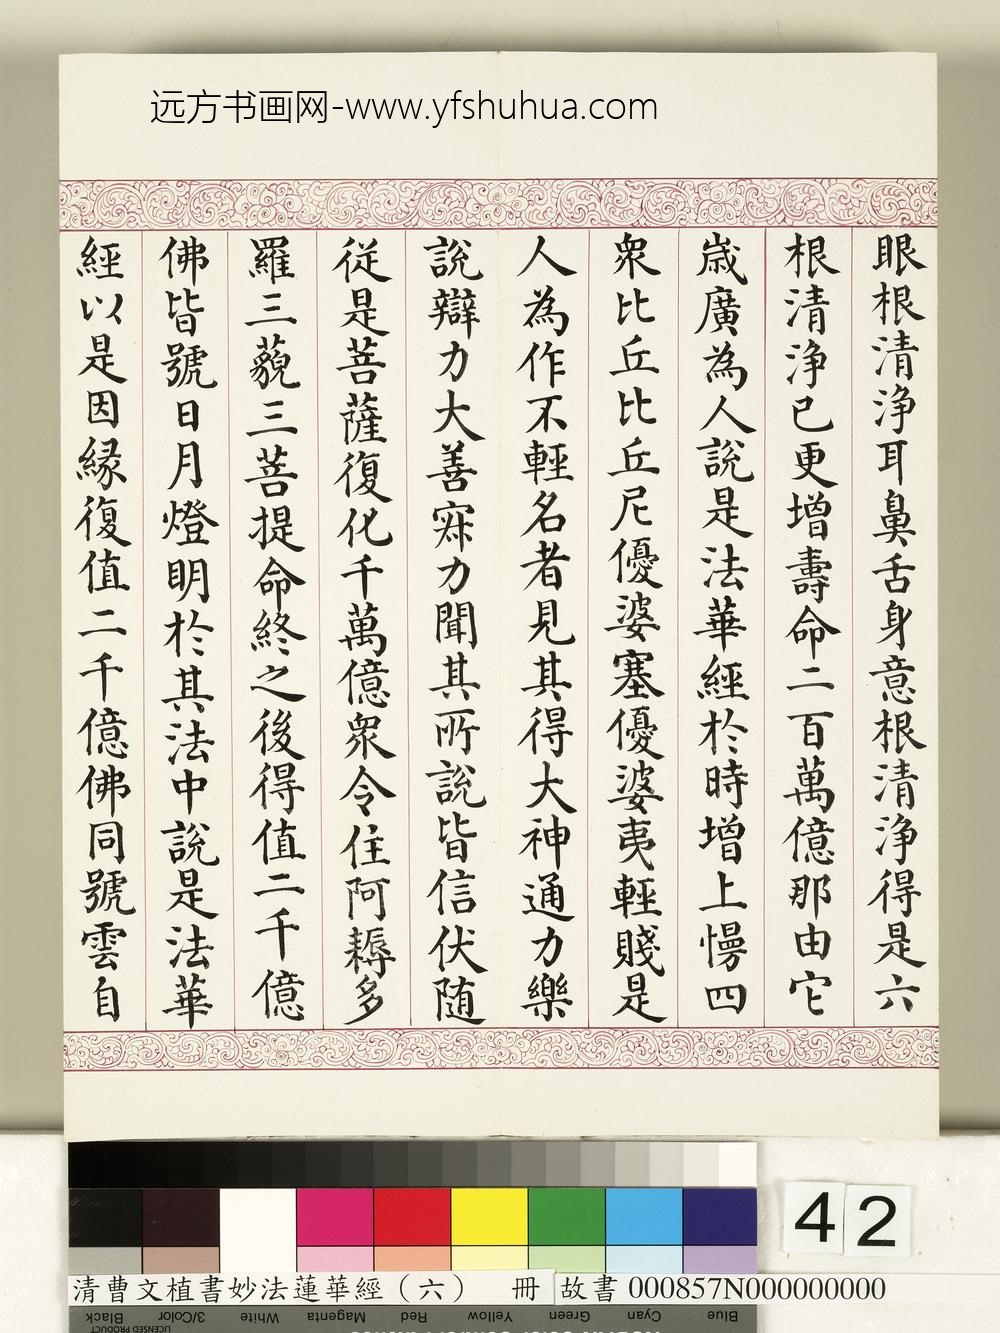 远方书画网-www.yfshuhua.com
眼根清浄耳鼻舌身意根清浄得是六
根清浄已更增壽命二百萬億那由它
歲廣為人說是法華經於時增上慢四
衆比丘比丘尼優婆塞優婆夷輕賤是
人為作不輕名者見其得大神通力樂
說辯力大善寂力聞其所說皆信伏随
従是菩薩復化千萬億衆令住阿耨多
羅三藐三菩提命終之後得值二千億
佛皆號日月燈明於其法中說是法華
經以是因緣復值二千億佛同號雲自
42
清曹文植書妙法蓮華經（六） 冊 故書 000857N000000000
Black 3/Color White Magenta Red Yellow Green Cyan Blue
LICENSED PRODUCT